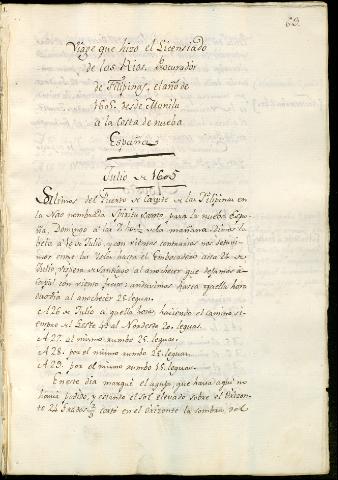 63.
Viage que hizo el Licenciado
de los Rios, Procurador
de Filipinas, el año de
1605. desde Manila
a la Costa de nueba
España
Julio de 1605
Salimos del Puerto de Cavite de las Filipinas en
la Nao nombrada Spiritu Santo, para la nueba Espa-
ña, Domingo a las de la mañana Dimos la
bela a de Julio, y con vientos contrarios nos detubi-
mos entre las Yslas hasta el Embocadero asta 25 de
Julio vispera de Santiago al anochecer que dejamos a
con viento fresco andubimos hasta aquella hora
al anochecer 25 leguas.
A 26 de Julio a aquella horas haciendo el camino si-
empre al Leste 4ª al Nordeste 20. leguas.
A 27. al mismo rumbo 25. leguas.
A 28. por el mismo rumbo 25. leguas.
A 29. por el mismo rumbo 15. leguas.
En este dia marqué el aguja, que hasta aqui no
havia podido, y estando el Sol elevado sobre el Orizon-
te 24 Grados 2/3 cortó en el Orizonte la sombra del